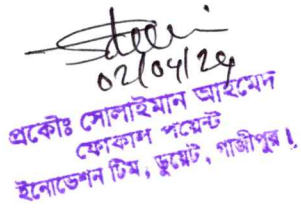 02/04/24
প্রকৌঃ সোলাইমান আহমেদ
ফোকাশ পয়েন্ট
ইনোভেশন টিম, ডুয়েট, গাজীপুর।